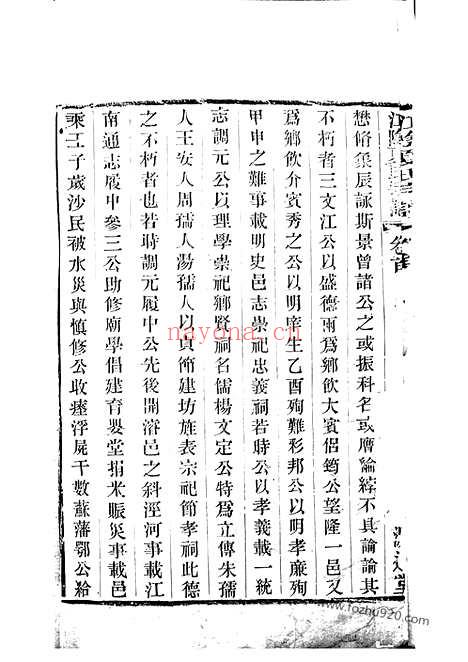 懋脩集辰詠斯景曾諸公之或振科名或膺綸綍不具論論其
不朽者三文江公以盛德兩爲鄉飲大賓侶筠公望隆一邑又
爲鄉飲介賓秀之公以明庠生乙酉殉難彩邦公以明孝廉殉
甲申之難事載明史邑志崇祀忠義祠若時公以孝義載一統
志調元公以理學崇祀鄉賢祠名儒楊文定公特爲立傳朱孺
人王安人周孺人湯孺人以貞節建坊旌表宗祀節孝祠此德
之不朽者也若時調元履中公先後開濬邑之斜涇河事載江
南通志履中參三公助修廟學倡建育嬰堂捐米賑災事載邑
乘壬子歲沙民被水災與慎修公收瘞浮屍千數蘇藩鄂公給
卷首
nayona.cn
www.fozhu920.com